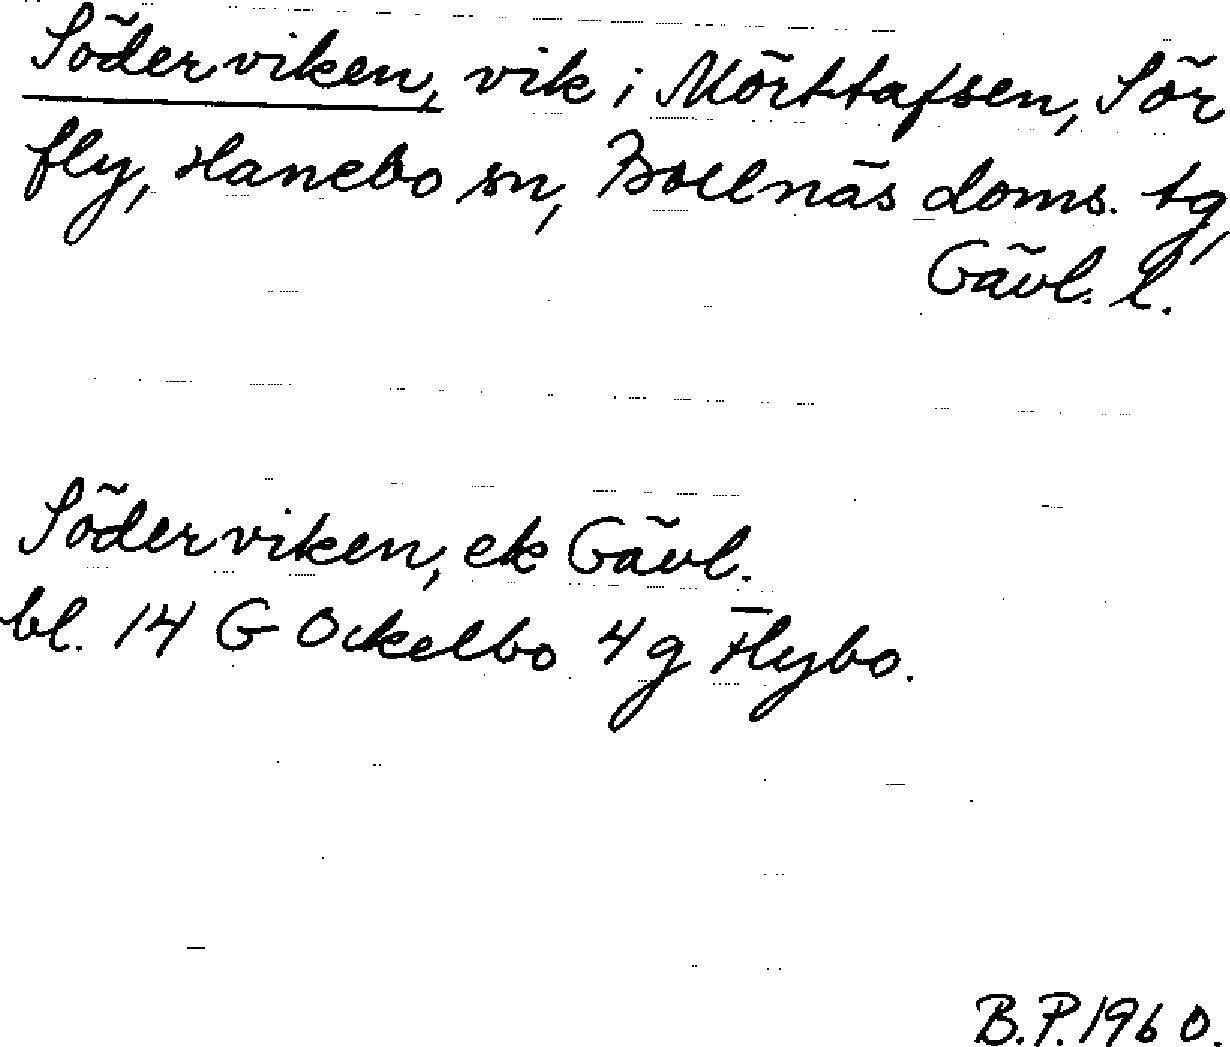 Söderviken, vik i Mörttafsen, Sör
fly, Hanebo sn, Bollnäs doms. tg,
Gävl. l.
Söderviken, ek Gävl.
bl. 14 G Ockelbo 4 g Flybo.
B.P. 1960.